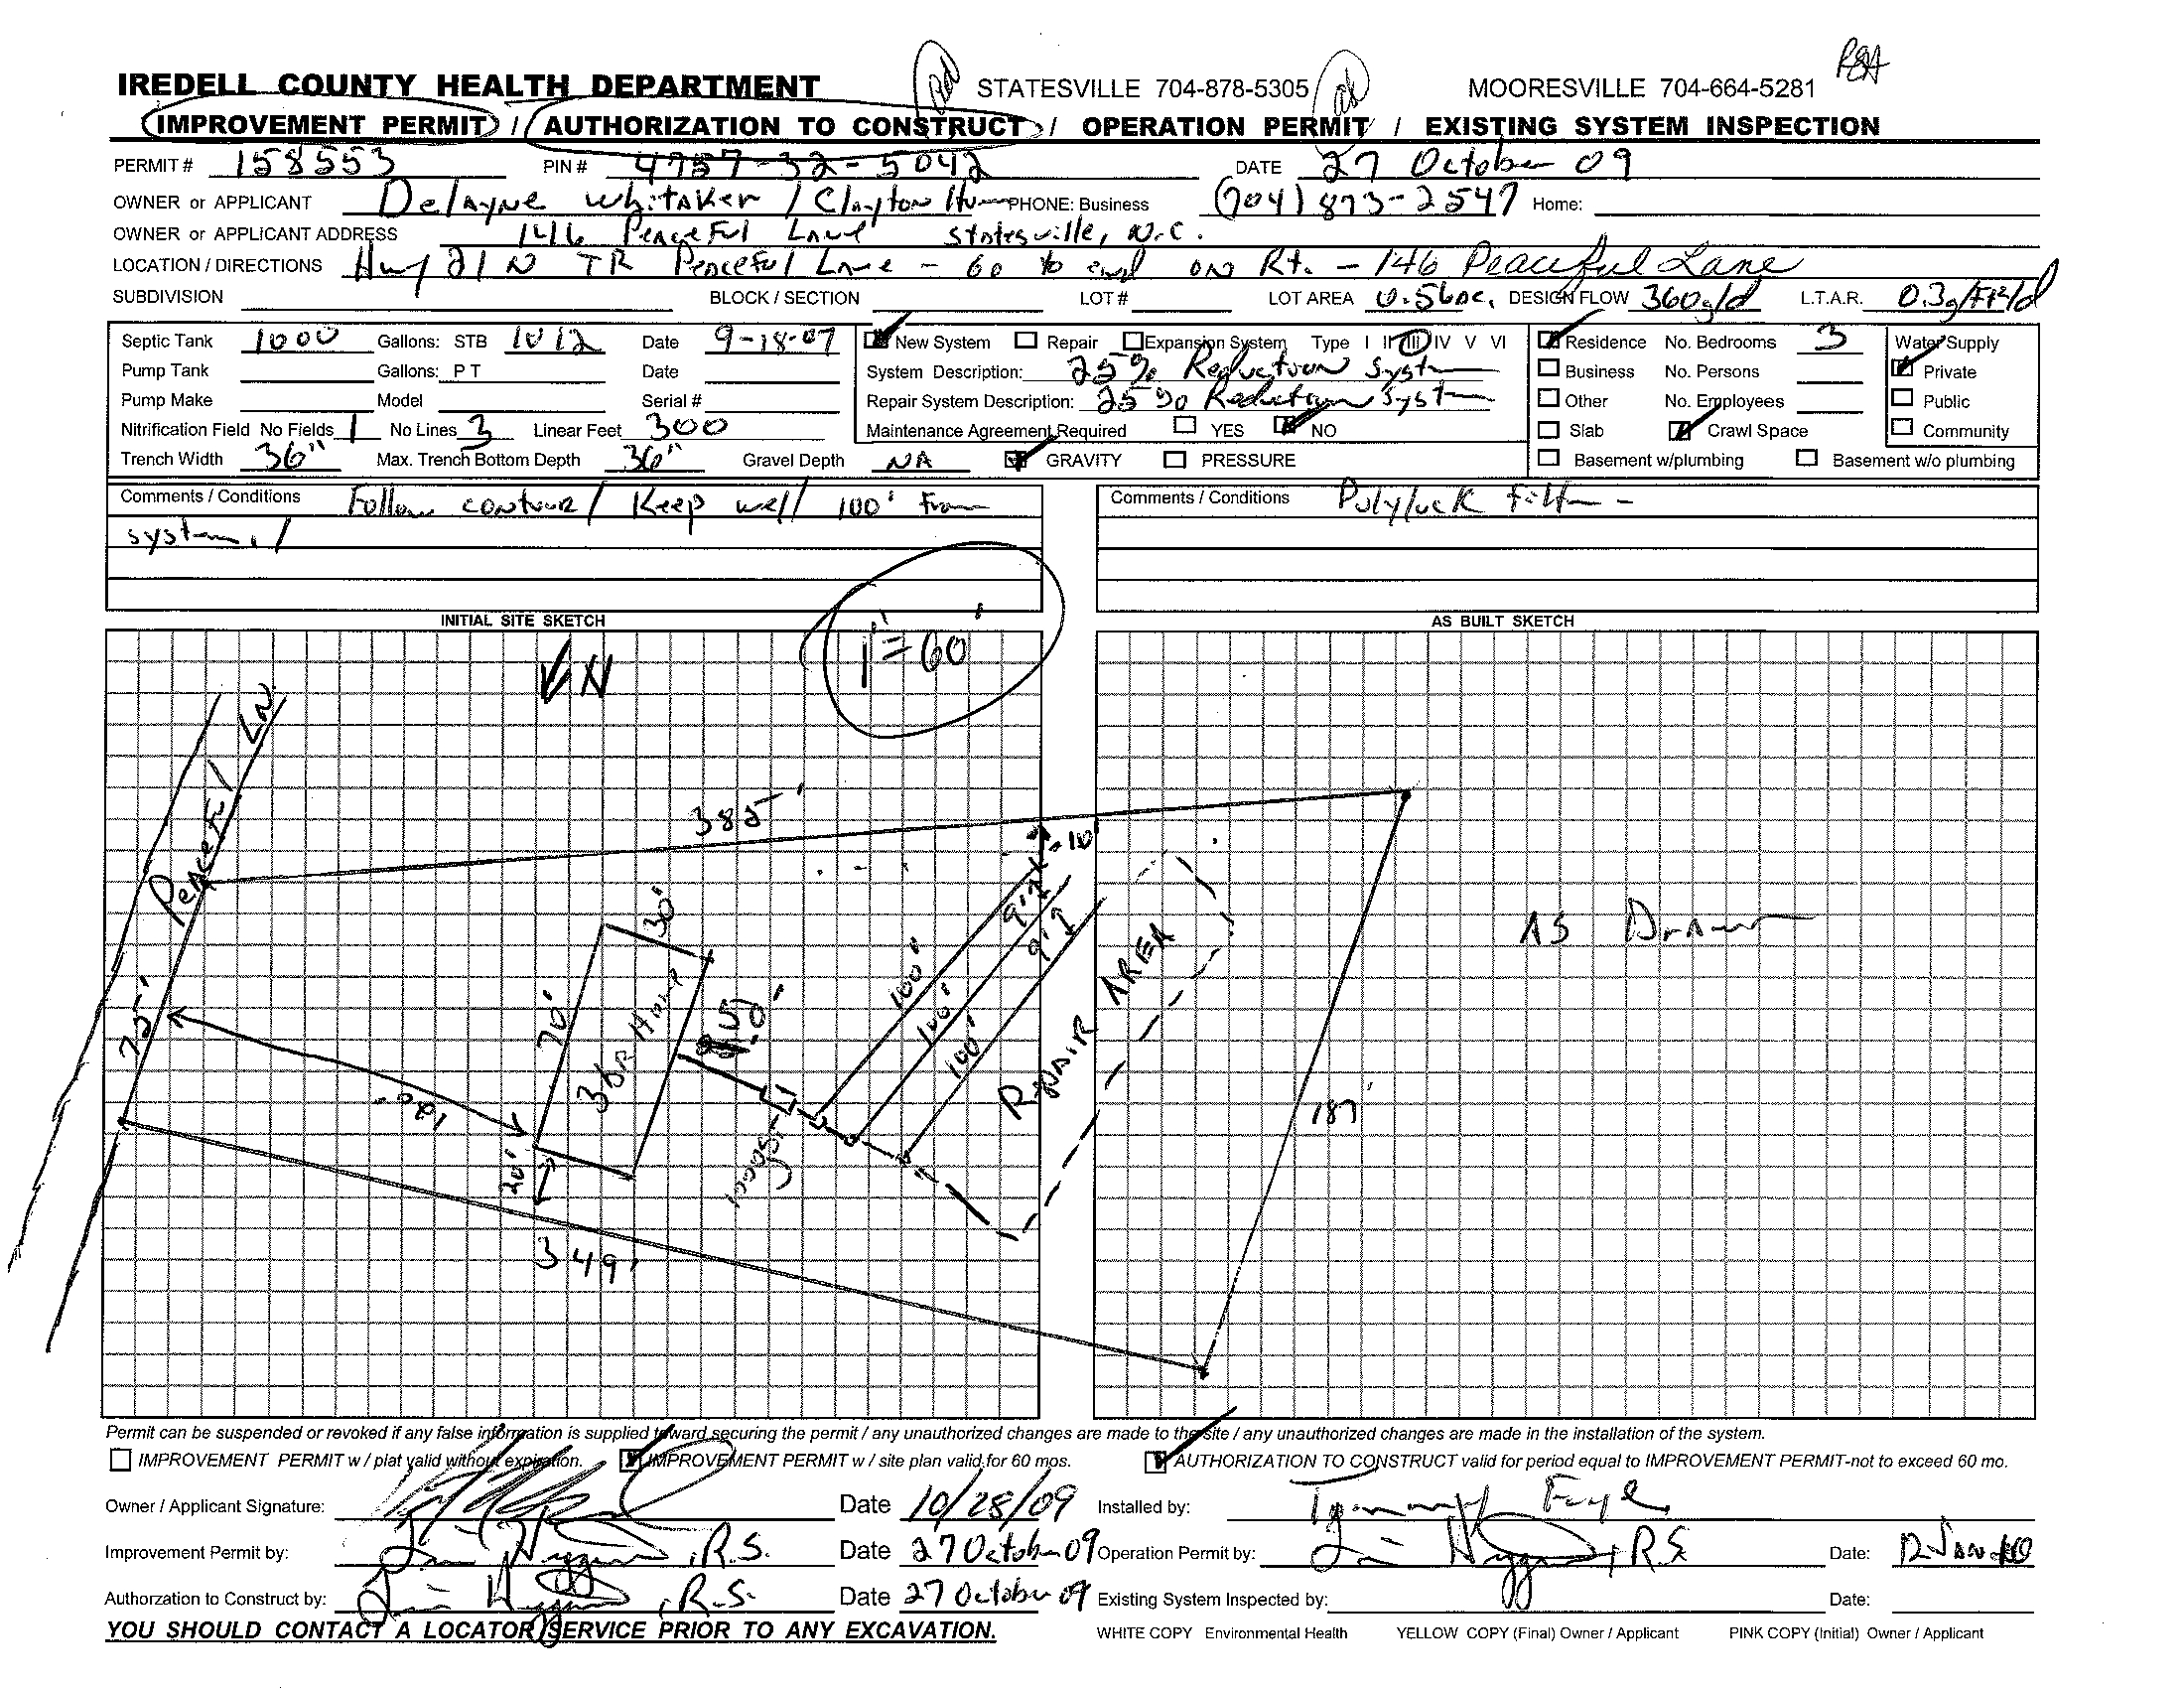 IREDELL COUNTY HEALTH DEPARTMENT STATESVILLE 704-878-5305 MOORESVILLE 704-664-5281
IMPROVEMENT PERMIT / AUTHORIZATION TO CONSTRUCT / OPERATION PERMIT / EXISTING SYSTEM INSPECTION
PERMIT # 158553 PIN # 4757-32-5042 DATE 27 October 09
OWNER or APPLICANT Delayne Whitaker / Clayton PHONE: Business (704) 873-2547 Home:
OWNER or APPLICANT ADDRESS 146 Peaceful Lane Statesville, N.C.
LOCATION / DIRECTIONS Hwy 21 N TR Peaceful Lane - Go to end on Rt. - 146 Peaceful Lane
SUBDIVISION BLOCK / SECTION LOT # LOT AREA 0.56ac. DESIGN FLOW 360g/d L.T.A.R. 0.3g/Ft²/d
Septic Tank 1000 Gallons: STB 1012 Date 9-18-07 New System Repair Expansion System Type I II III IV V VI Residence No. Bedrooms 3 Water Supply
Pump Tank Gallons: P T Date System Description: 25% Reduction System Business No. Persons Private
Pump Make Model Serial # Repair System Description: 25% Reduction System Other No. Employees Public
Nitrification Field No Fields 1 No Lines 3 Linear Feet 300 Maintenance Agreement Required YES NO Slab Crawl Space Community
Trench Width 36" Max. Trench Bottom Depth 36" Gravel Depth NA GRAVITY PRESSURE Basement w/plumbing Basement w/o plumbing
Comments / Conditions Follow contour / Keep well 100' from
system. /
Comments / Conditions Polylock Filter -
INITIAL SITE SKETCH
AS BUILT SKETCH
1"=60'
N
Peaceful LN
385'
10'
30'
9'
9'
As Drawn
75'
70'
3 BR Home
50'
100'
100'
100'
REPAIR AREA
180'
20'
1000ST
187'
349'
Permit can be suspended or revoked if any false information is supplied toward securing the permit / any unauthorized changes are made to the site / any unauthorized changes are made in the installation of the system.
IMPROVEMENT PERMIT w / plat valid without expiration. IMPROVEMENT PERMIT w / site plan valid for 60 mos. AUTHORIZATION TO CONSTRUCT valid for period equal to IMPROVEMENT PERMIT-not to exceed 60 mo.
Owner / Applicant Signature: Date 10/28/09 Installed by:
Improvement Permit by: , R.S. Date 27 October 09 Operation Permit by: , RS Date:
Authorzation to Construct by: , R.S. Date 27 October 09 Existing System Inspected by: Date:
YOU SHOULD CONTACT A LOCATOR SERVICE PRIOR TO ANY EXCAVATION. WHITE COPY Environmental Health YELLOW COPY (Final) Owner / Applicant PINK COPY (Initial) Owner / Applicant